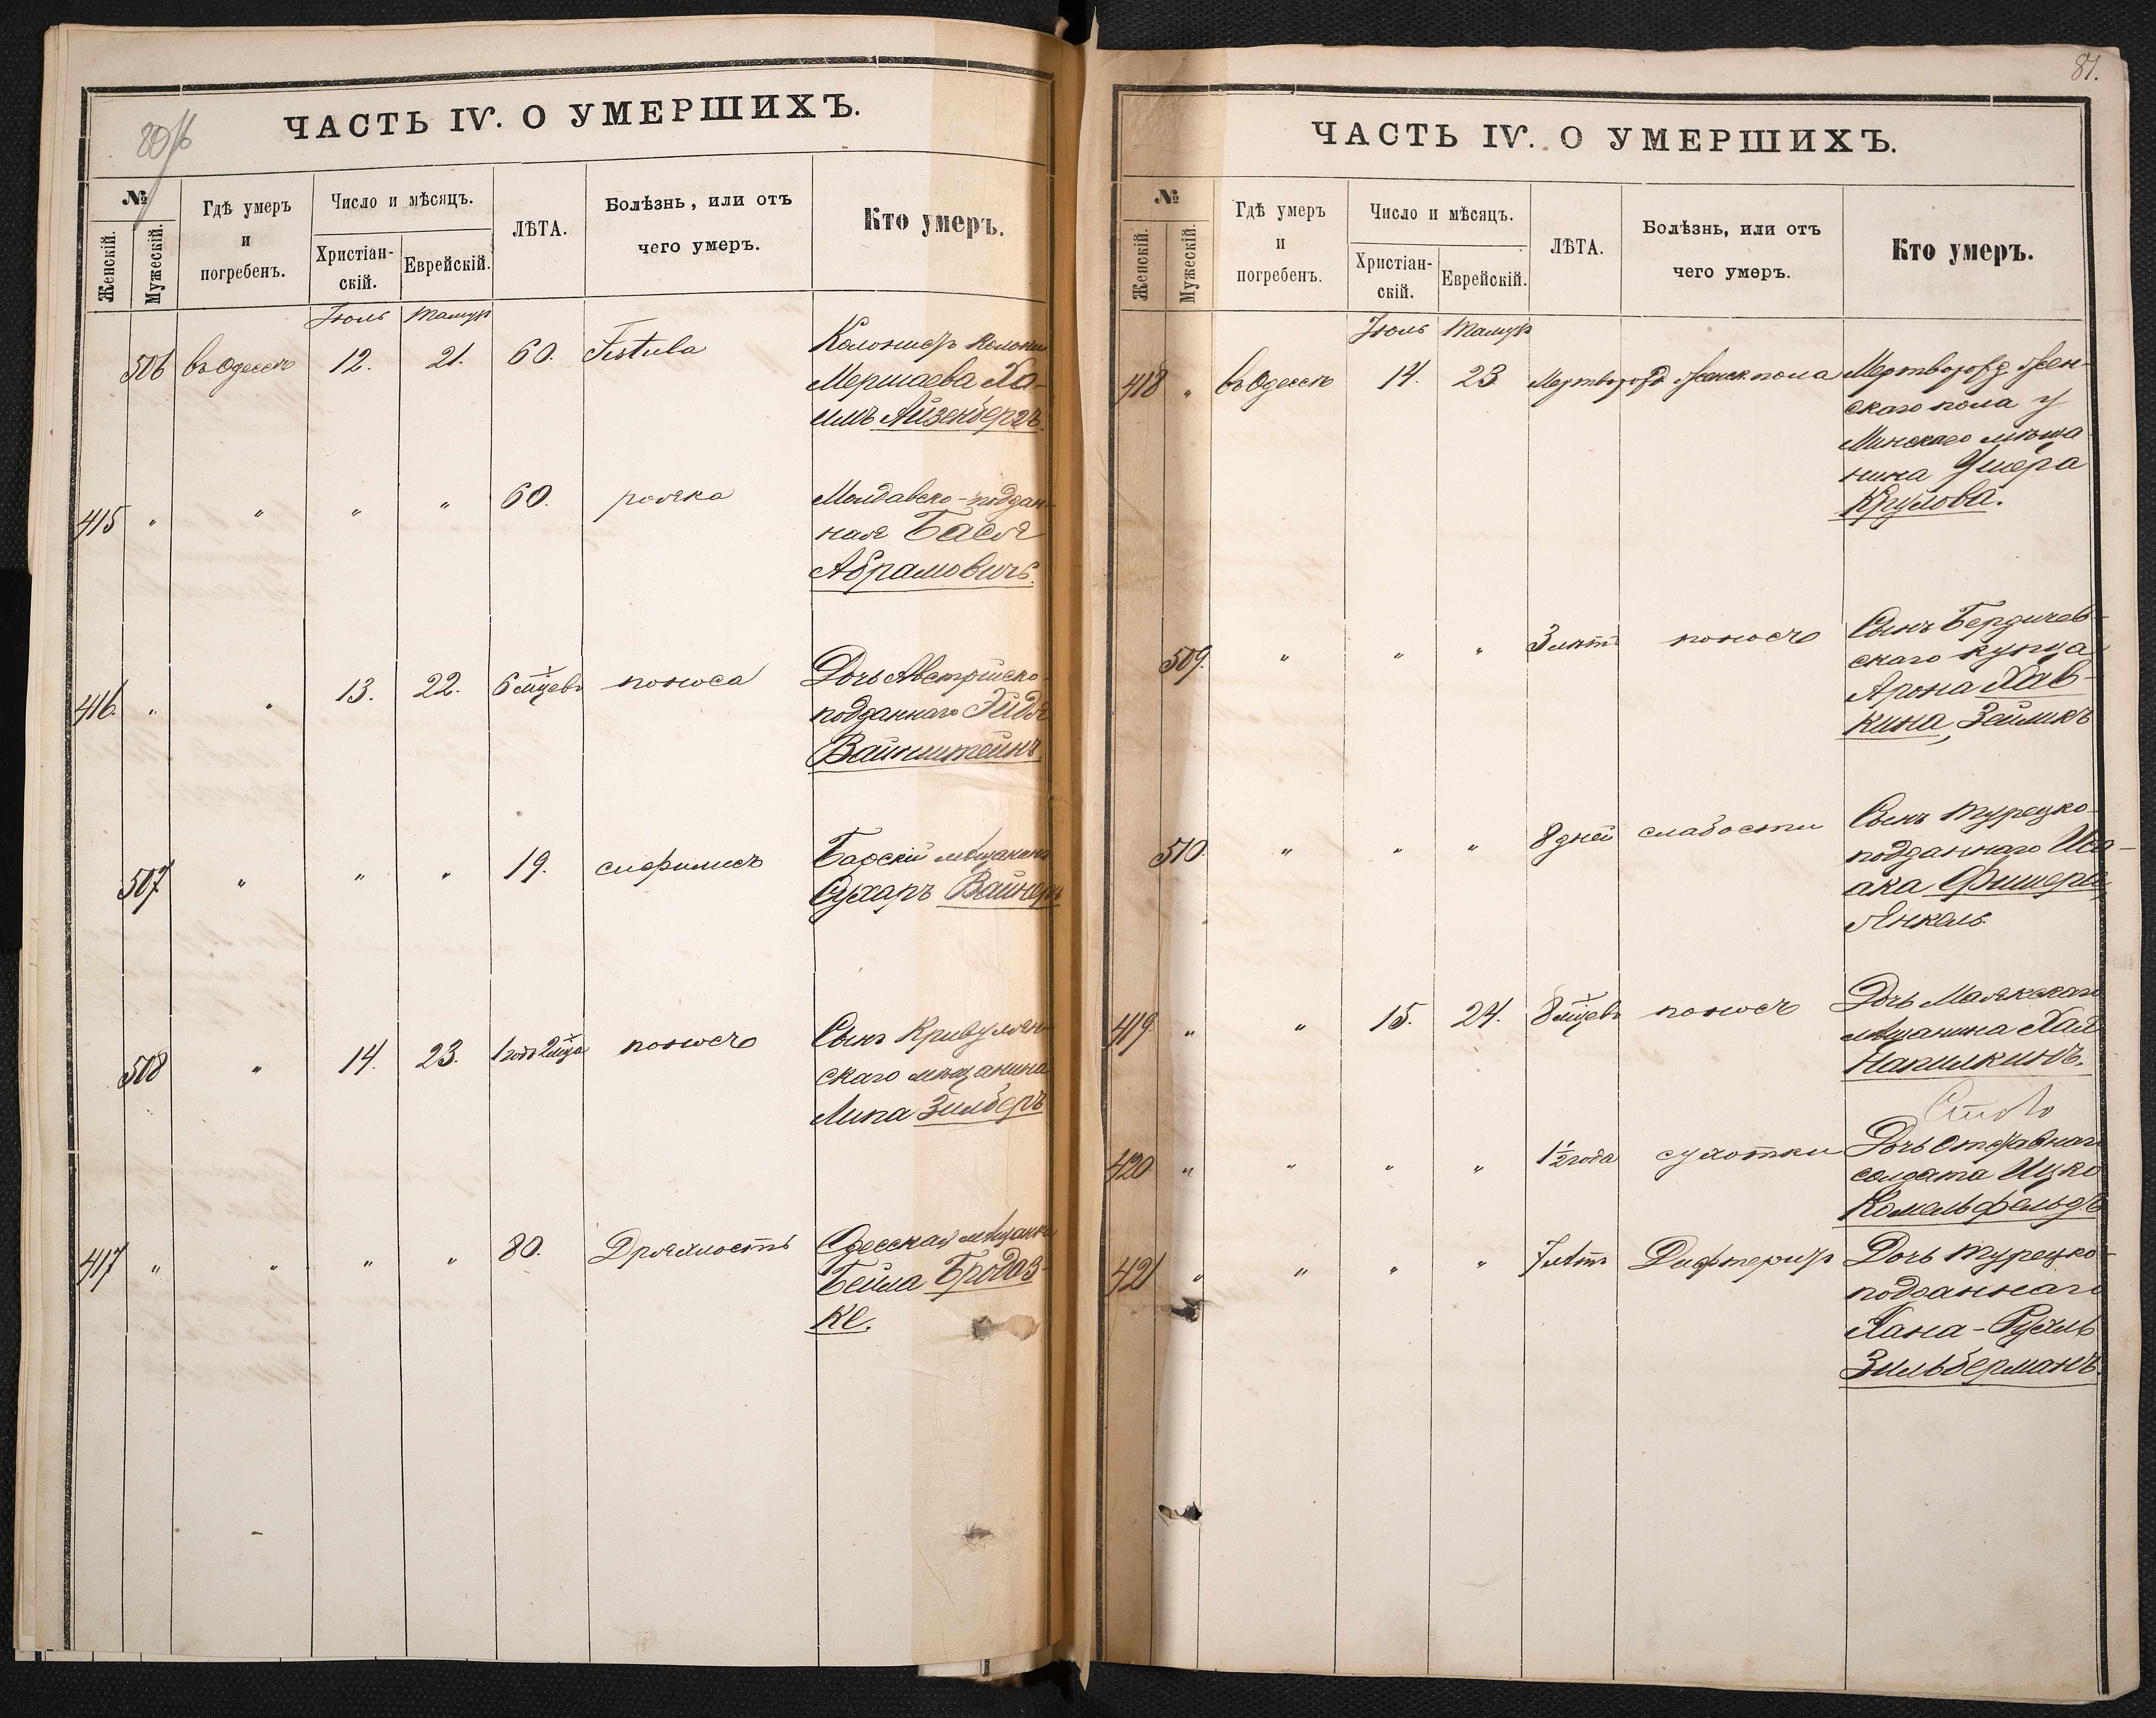 80/б
ЧАСТЬ IV. О УМЕРШИХЪ.
№
Женскій.
Мужескій.
Гдѣ умеръ
и
погребенъ.
Число и мѣсяцъ.
Христіан-
скій.
Еврейскій.
ЛѢТА.
Болѣзнь, или отъ
чего умеръ.
Кто умеръ.
Іюль Тамузъ
506 въ Одессѣ 12. 21. 60. Fistula Колонистъ колоніи
Хa-
имъ Айзенбергъ.
415 " " " " 60. рожа Молдавско-поддан-
ная Бася
Абрамовичъ.
416. " " 13. 22. 6 мѣсяцевъ поноса Дочь Австрійско
подданнаго
Вайнштейнъ.
507 " " " 19. сифилисъ Барскій мѣщанинъ
Сухаръ Вайнеръ
508 " 14. 23. 1 годъ 2 мѣсяца поносъ Сынъ Кривулян-
скаго мѣщанина
Липа Зильберъ
417 " " " " 80. Дряхлость Одесская мѣщанка
Бейла Бродоз-
ке.
81.
ЧАСТЬ IV. О УМЕРШИХЪ.
№
Женскій.
Мужескій.
Гдѣ умеръ
и
погребенъ.
Число и мѣсяцъ.
Христіан-
скій.
Еврейскій.
ЛѢТА.
Болѣзнь, или отъ
чего умеръ.
Кто умеръ.
Іюль Тамузъ
418 " въ Одессѣ 14. 23. Мертворожд. женск. пола Мертворожд. жен-
скаго пола у
Минскаго мѣща
нина Ушера
Круглова.
509. " " " 3 лѣтъ поносъ Сынъ Бердичев-
скаго купца
Арона Хав-
кина, Зейликъ
510. " " " 8 дней слабости Сынъ Турецко-
подданнаго Иса-
ака Фишера,
Янкель.
419 " " 15. 24. 8 мѣсяцевъ поносъ Дочь Маякскаго
мѣщанина Хая
420 " " " " 1½ года сухотки Дочь Отставнаго
солдата Ицко
Комельфельдъ
421 " " " " 7 лѣтъ Дифтеритъ Дочь Турецко-
подданнаго
Хана-Рухль
Зильберманъ.